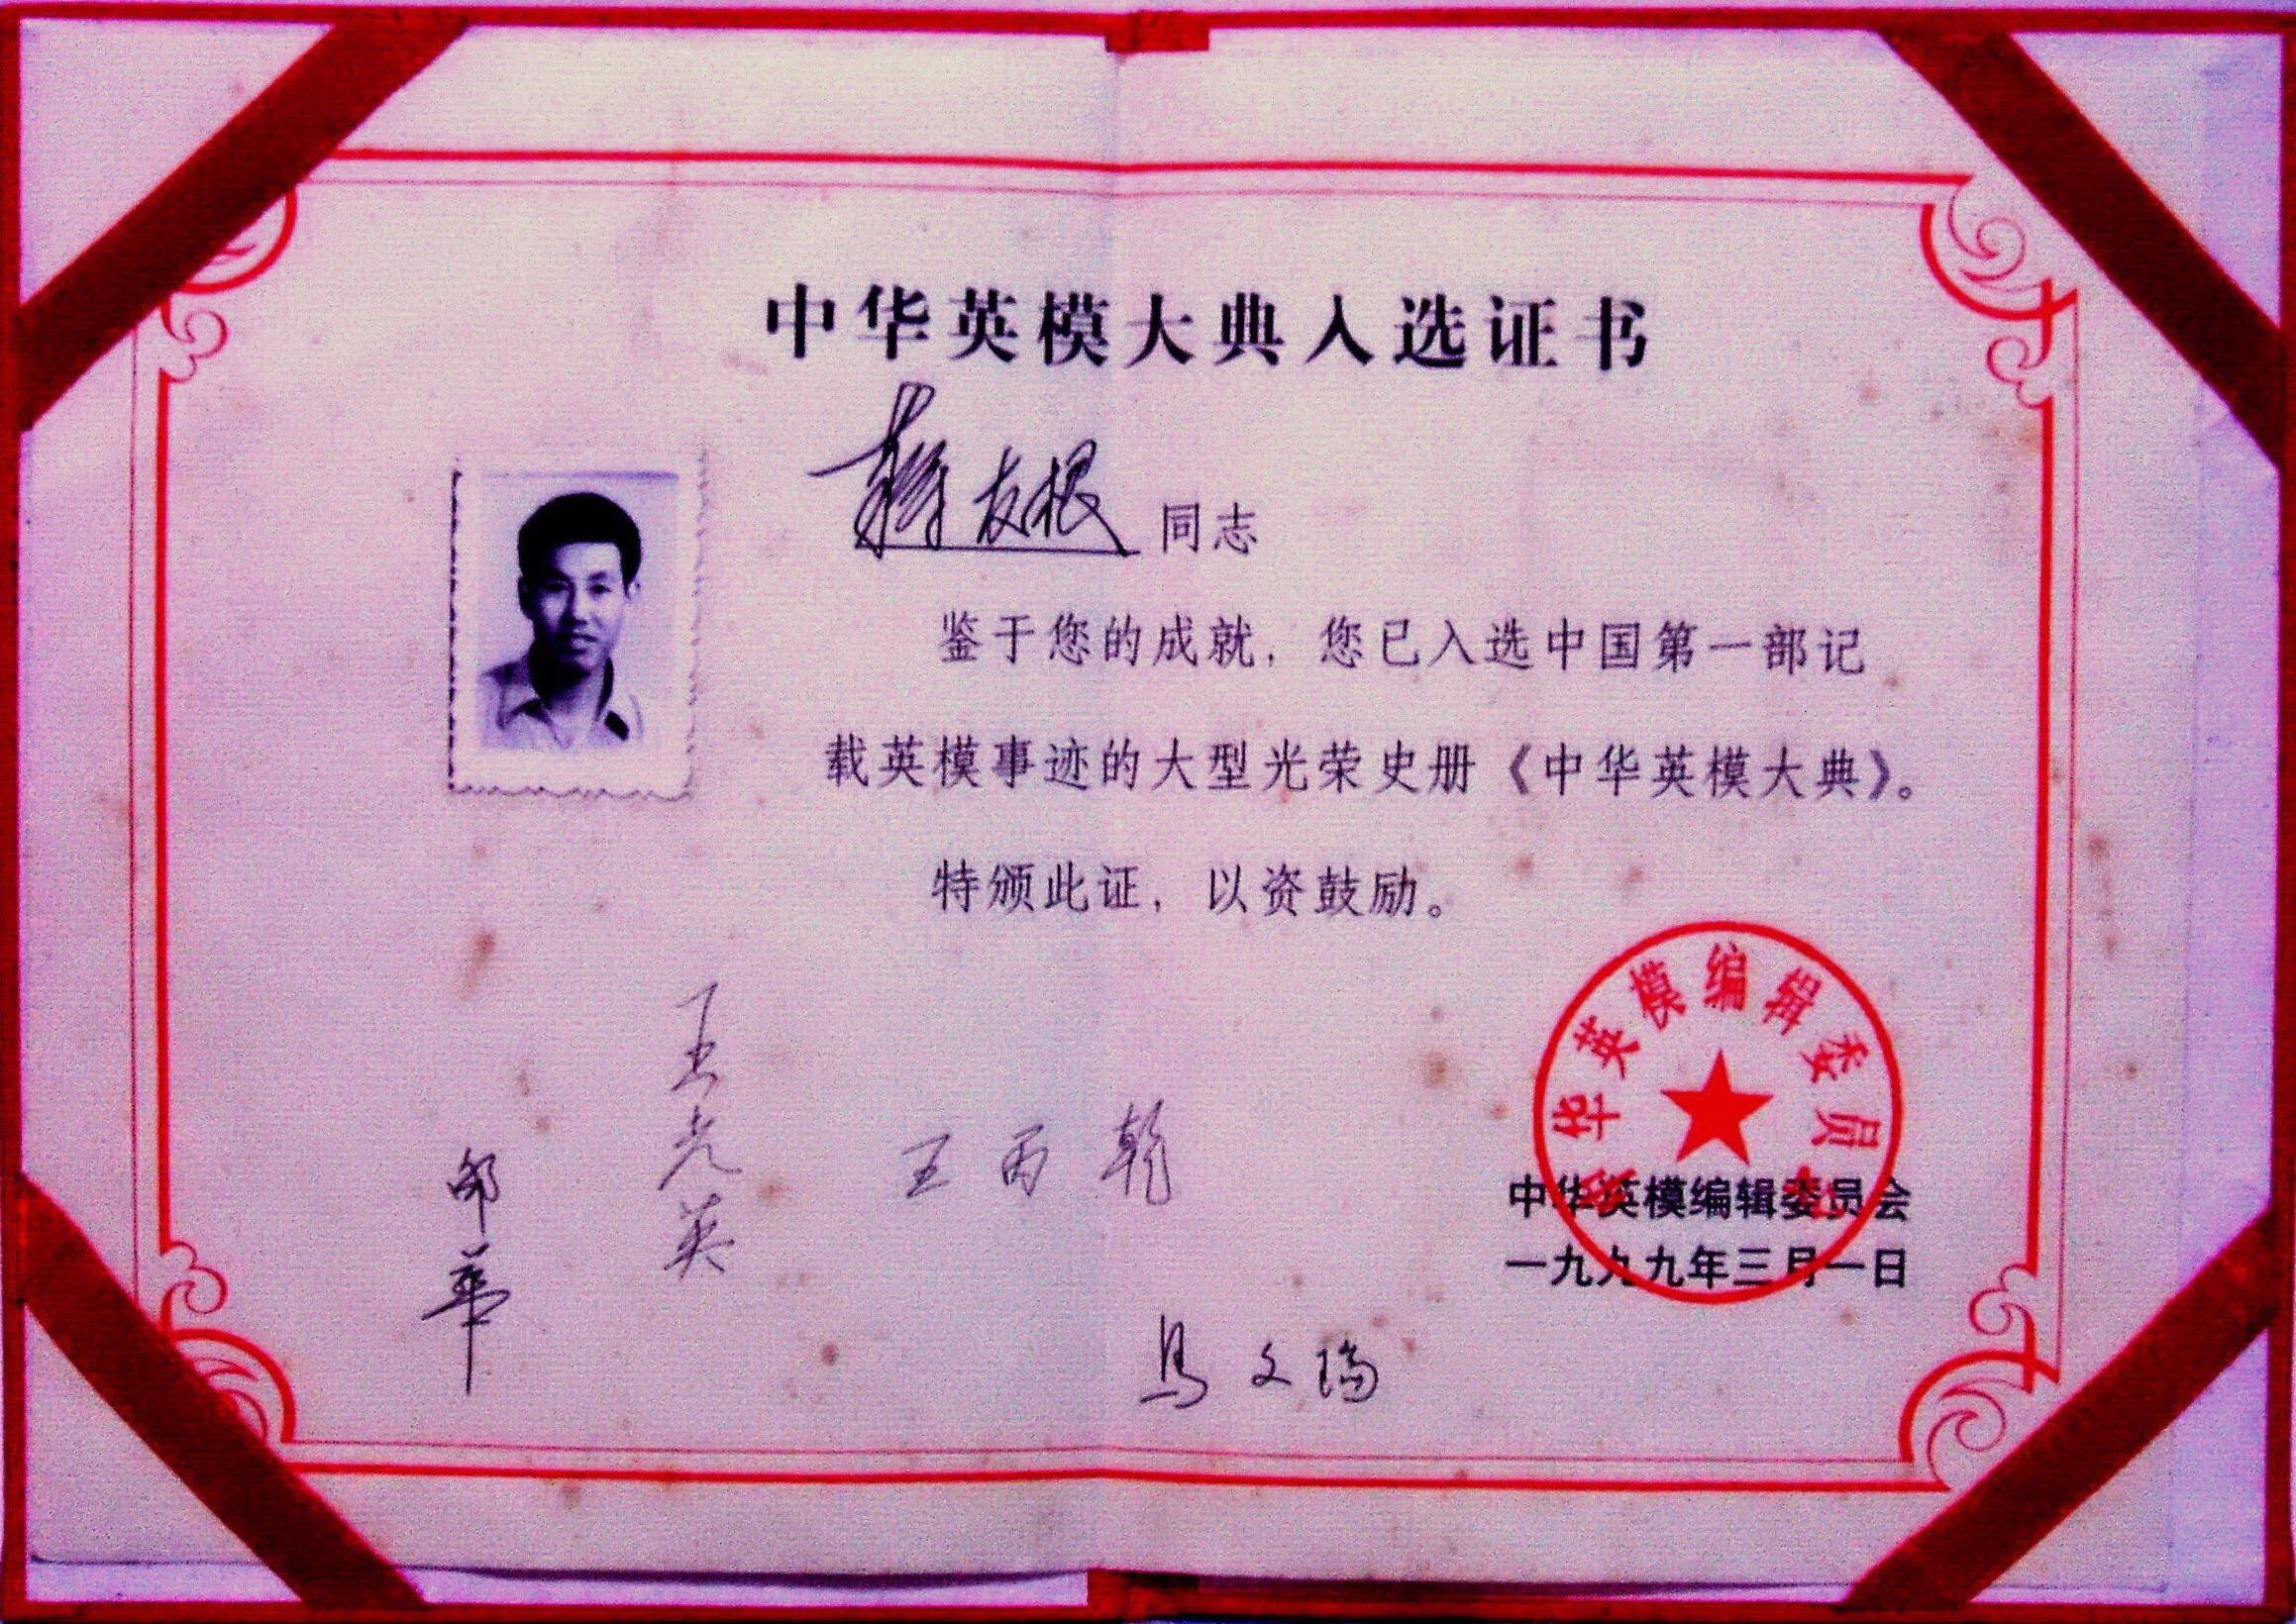 中华英模大典入选证书
蒋友根 同志
鉴于您的成就，您已入选中国第一部记
载英模事迹的大型光荣史册《中华英模大典》。
特颁此证，以资鼓励。
王光英
王丙乾
邵华
马文瑞
中华英模编辑委员会
中华英模编辑委员会
一九九九年三月一日